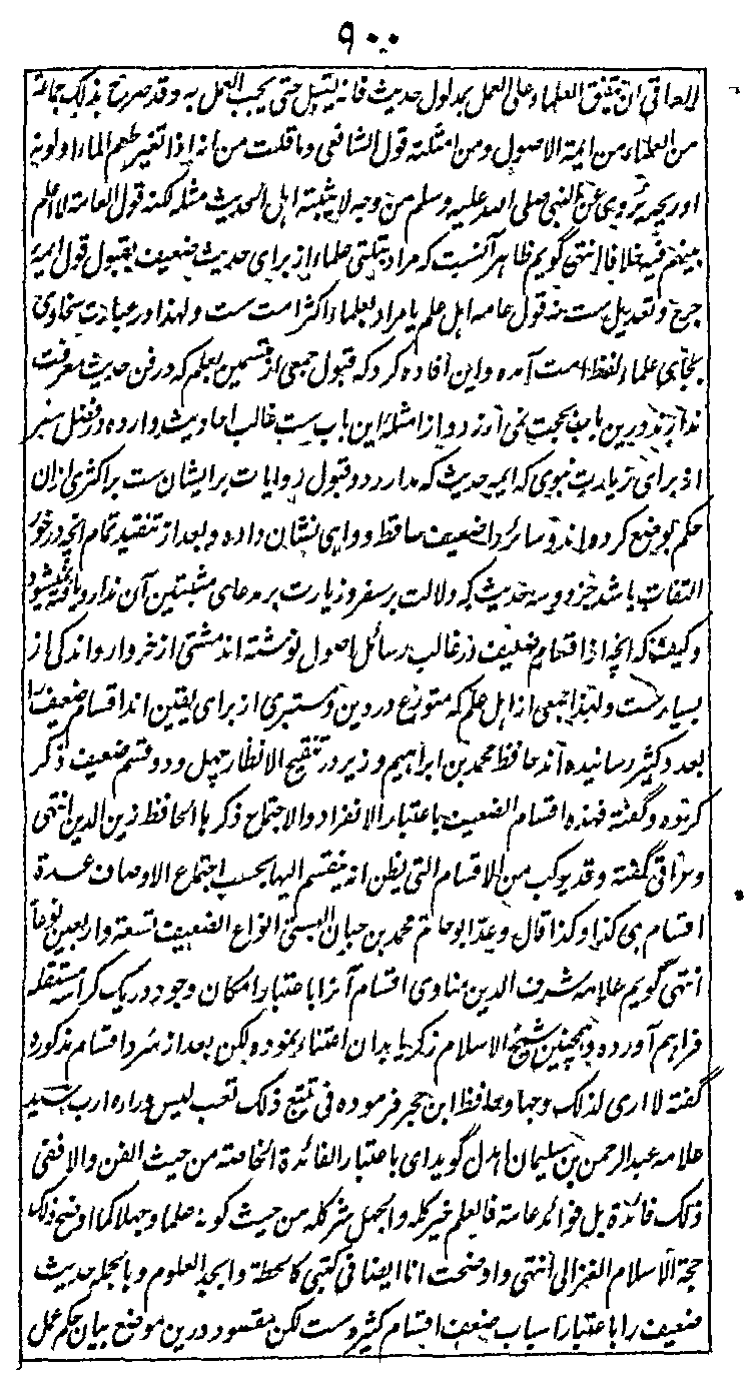 ۹۰۰
العاقی ان یتفق العلماء علی العمل بمدلول حدیث فانه یقبل حتی یجب العمل به وقد صرح بذلک جماعة
من العلماء من ایمة الاصول ومن امثلته قول الشافعی وما قلت من انه اذا تغیر طعم الماء او لونه
او ریحه یروی عن النبی صلی الله علیه وسلم من وجه لا یثبته اهل الحدیث مثله لکنه قول العامة لا اعلم
بینهم فیه خلافا انتهی گویم ظاهر آنست که مراد بتلقی علماء از برای حدیث ضعیف بقبول قول ایمه
جرح و تعدیل ست نه قول عامه اهل علم یا مراد بعلماء اکثر امت ست و لهذا در عبارت سخاوی
بجای علماء لفظ امت آمده و این افاده کرد که قبول جمعی از متسمین بعلم که در فن حدیث معرفت
ندارند درین باب بحجت نمی ارزد و از امثله این باب ست غالب احادیث وارده در فضل سفر
از برای زیارت نبوی که ایمه حدیث که مدار رد و قبول روایات برایشان ست بر اکثری ازان
حکم بوضع کرده اند و سائر را ضعیف ساقط و واهی نشان داده و بعد از تنقید تمام انچه درخور
التفات باشد جز دو سه حدیث که دلالت بر سفر و زیارت بر مدعای مثبتین آن ندارد یافته نمیشود
و کیف که انچه از اقسام ضعیف در غالب رسائل اصول نوشته اند مشتی از خروار و اندکی از
بسیارست و لهذا جمعی از اهل علم که متورع در دین و مستبری از برای یقین اند اقسام ضعیف را
بعد و کثیر رسانیده اند حافظ محمد بن ابراهیم وزیر در تنقیح الانظار چهل و دو قسم ضعیف ذکر
کرده و گفته فهذه اقسام الضعیف باعتبار الانفراد والاجتماع ذکرها الحافظ زین الدین انتهی
و عراقی گفته وقد یرکب من الاقسام التی یظن انه ینقسم الیها بحسب اجتماع الاوصاف عدة
اقسام هی کذا وکذا قال وعد ابو حاتم محمد بن حبان البستی انواع الضعیف تسعة واربعین نوعاً
انتهی گویم علامه شرف الدین مناوی اقسام آنرا باعتبار امکان وجود در یک کراسه مستقله
فراهم آورده و همچنین شیخ الاسلام زکریا بدان اعتناء نموده و لکن بعد از سرد اقسام مذکوره
گفته لا اری لذلک وجها و حافظ ابن حجر فرموده فی تتبع ذلک تعب لیس وراءه ارب سید
علامه عبد الرحمن بن سلیمان اهدل گوید ای باعتبار الفائدة الخاصة من حیث الفن والا ففی
ذلک فائدة بل فوائد عامة فالعلم خیر کله والجهل شر کله من حیث کونه علما وجهلا کما اوضح ذلک
حجة الاسلام الغزالی انتهی واوضحت انا ایضا فی کتبی کالحطة وابجد العلوم و بالجمله حدیث
ضعیف را باعتبار اسباب ضعف اقسام کثیر ست لکن مقصود درین موضع بیان حکم عمل